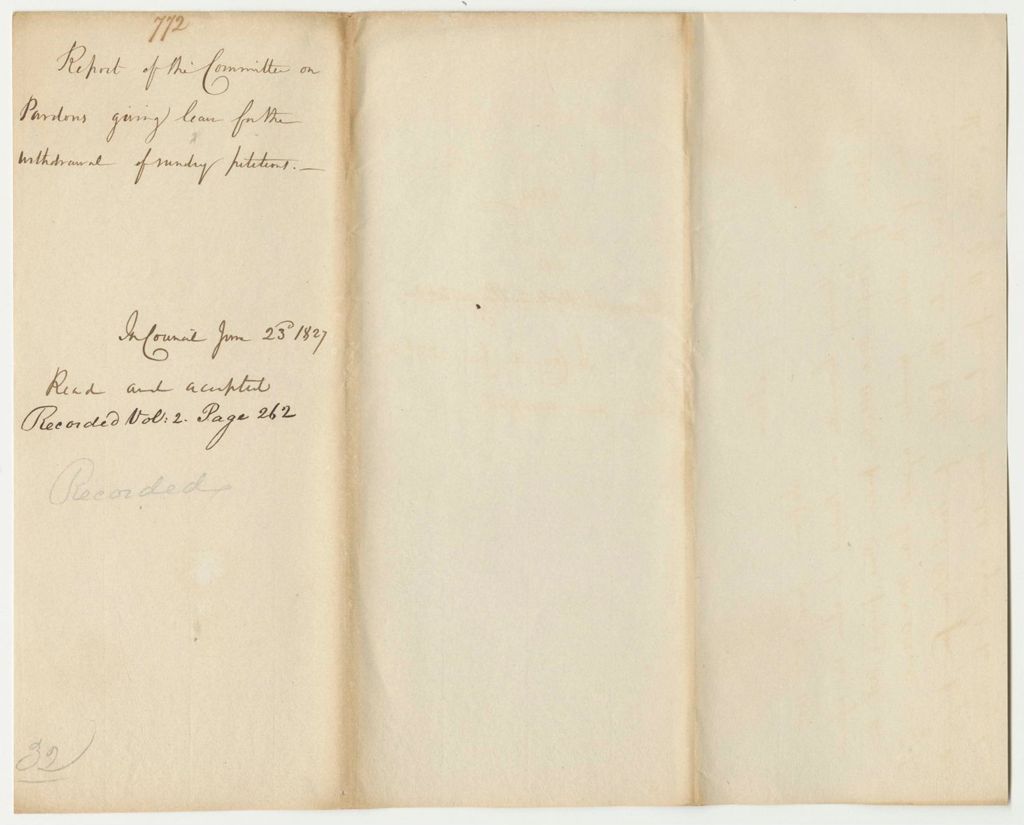 772
Report of the Committee on
Pardons giving leave for the
withdrawal of sundry petitions.—
In Council June 23d 1827
Read and accepted
Recorded Vol: 2. Page 262
Recorded
32